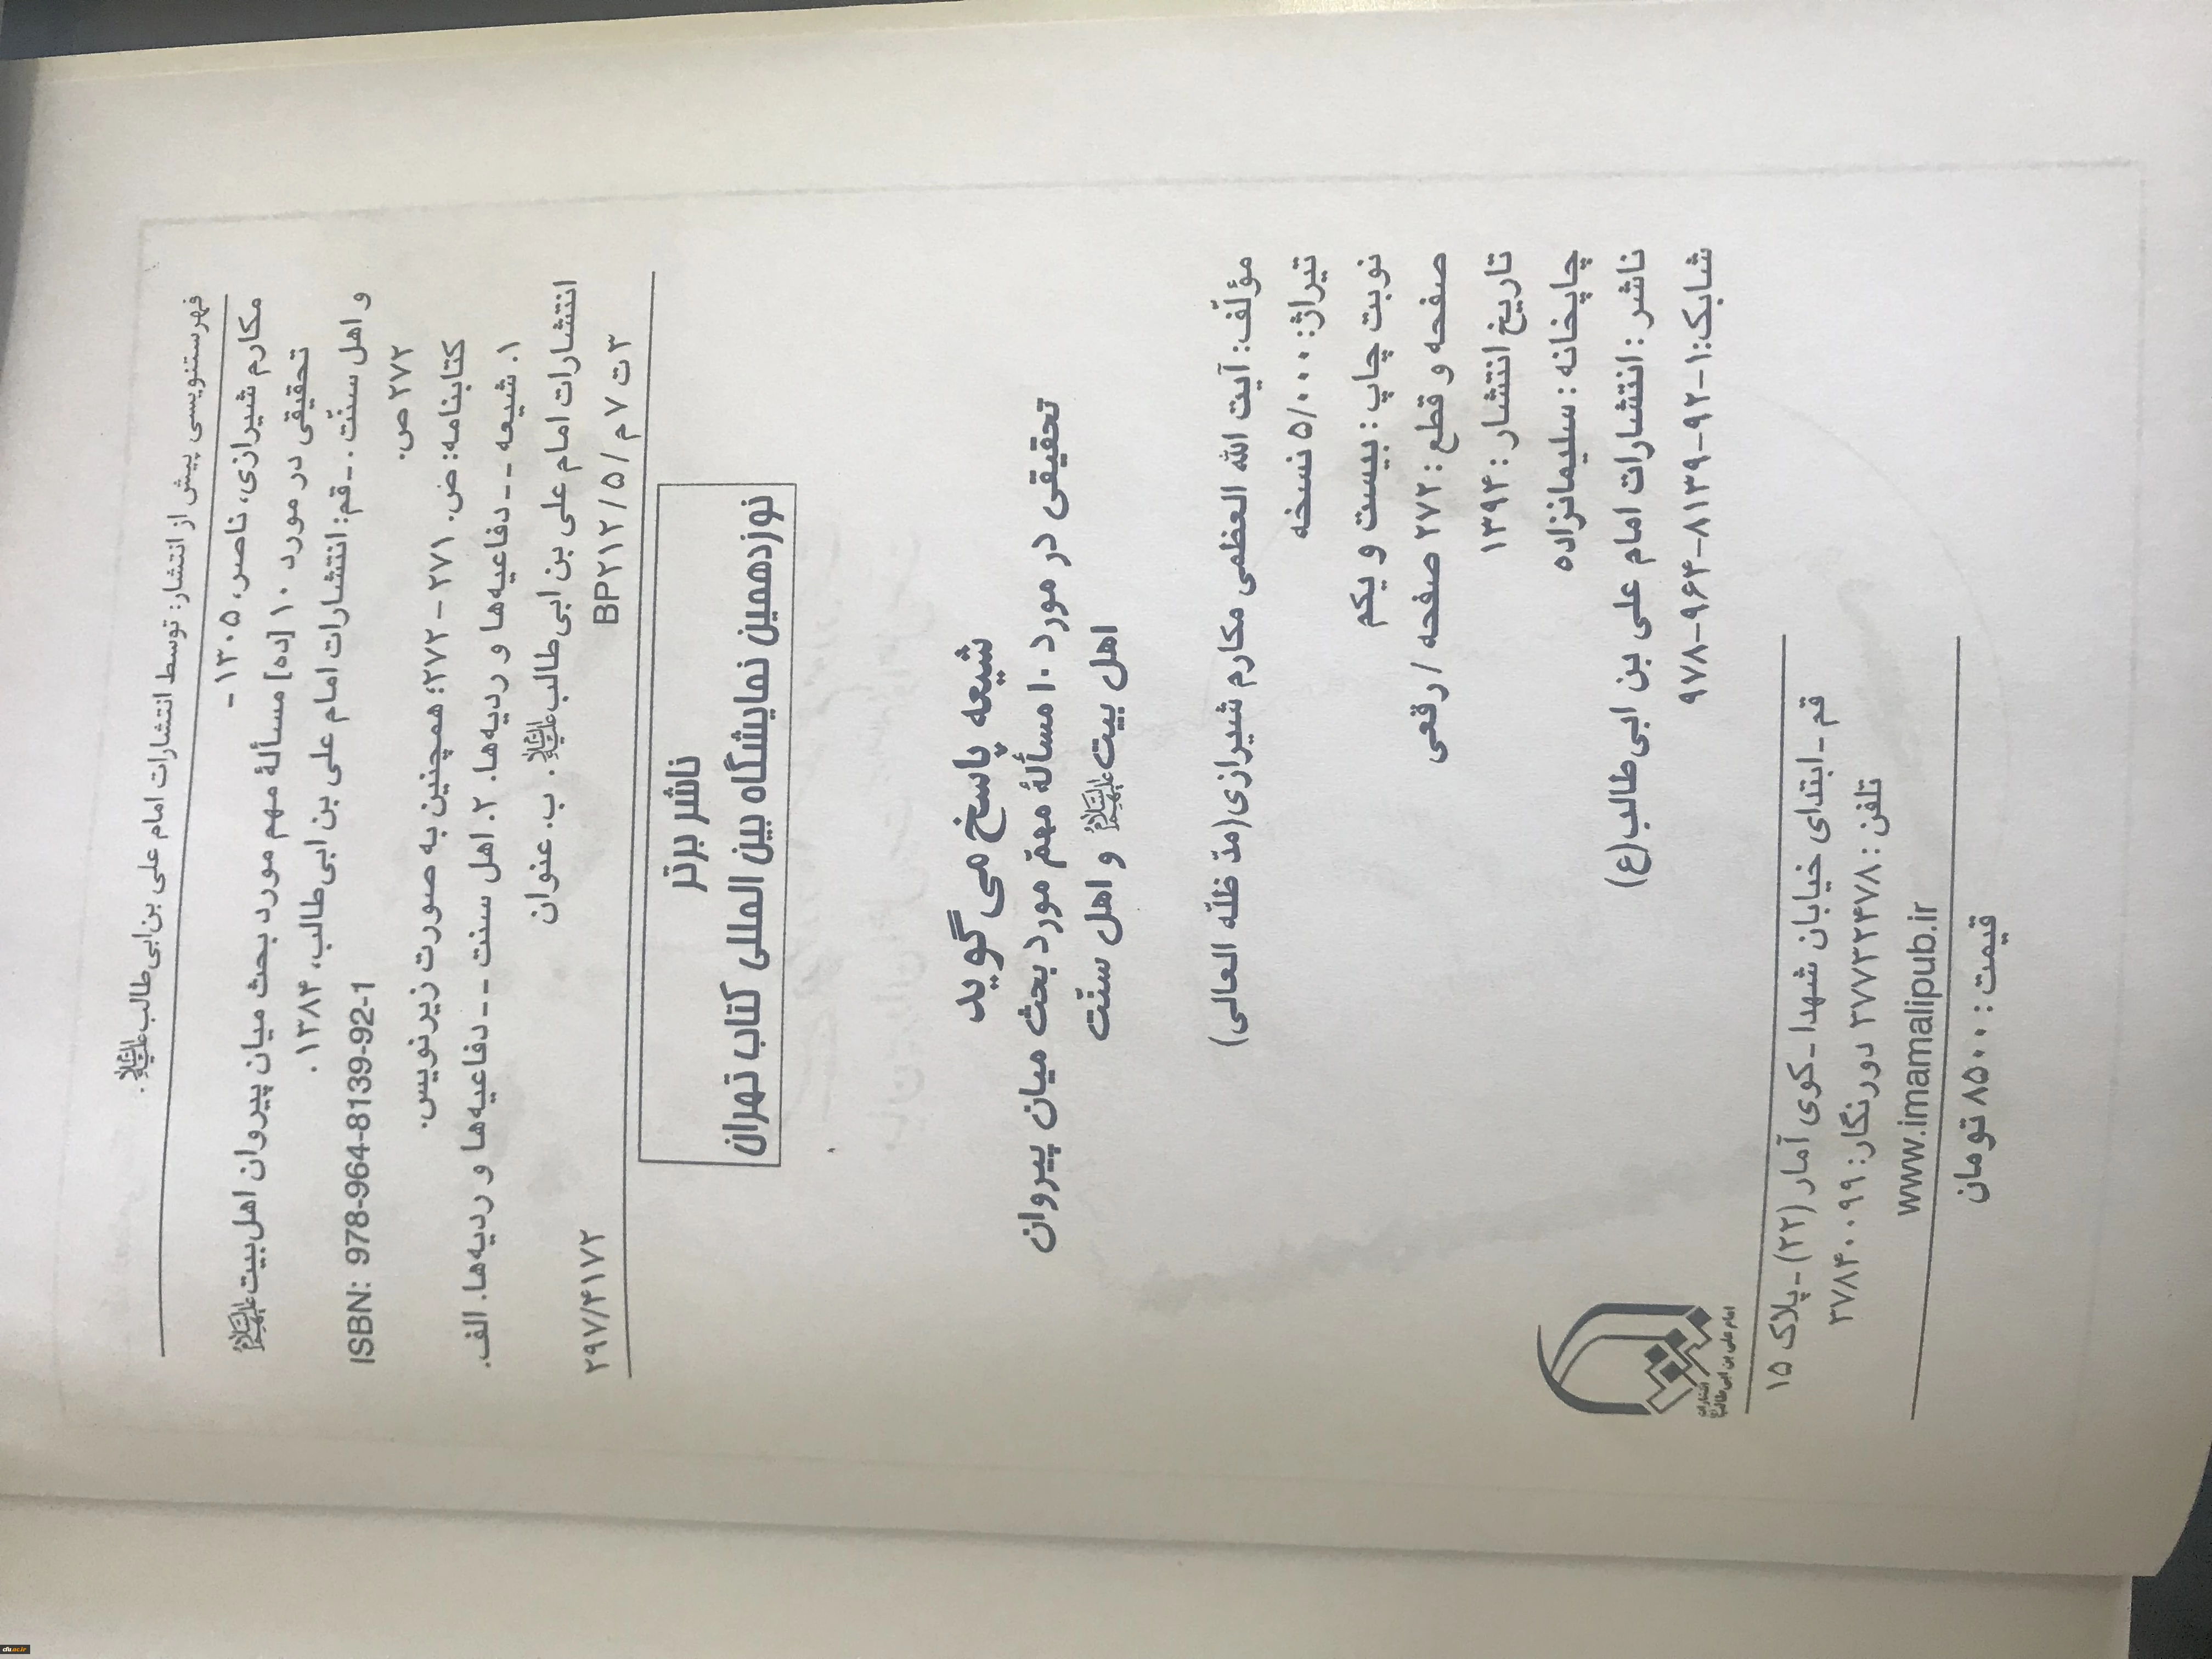 فهرستنویسی پیش از انتشار: توسط انتشارات امام علی بن‌ابی‌طالب علیه السلام.
مکارم شیرازی، ناصر، ۱۳۰۵ -
تحقیقی در مورد ۱۰ [ده] مسألهٔ مهم مورد بحث میان پیروان اهل‌بیت علیهم السلام
و اهل سنّت. ـ قم: انتشارات امام علی بن ابی‌طالب، ۱۳۸۴.
۲۷۲ ص.
ISBN: 978-964-8139-92-1
کتابنامه: ص. ۲۷۱ - ۲۷۲؛ همچنین به صورت زیرنویس.
۱. شیعه -- دفاعیه‌ها و ردیه‌ها. ۲. اهل سنت -- دفاعیه‌ها و ردیه‌ها. الف.
انتشارات امام علی بن ابی‌طالب علیه السلام. ب. عنوان
۳ ت ۷ م / ۵ / BP۲۱۲
۲۹۷/۴۱۷۲
ناشر برتر
نوزدهمین نمایشگاه بین المللی کتاب تهران
شیعه پاسخ می گوید
تحقیقی در مورد ۱۰ مسألهٔ مهمّ مورد بحث میان پیروان
اهل بیت علیهم السلام و اهل سنّت
مؤلّف: آیت الله العظمی مکارم شیرازی(مدّ ظلّه العالی)
تیراژ: ۵/۰۰۰ نسخه
نوبت چاپ: بیست و یکم
صفحه و قطع: ۲۷۲ صفحه / رقعی
تاریخ انتشار: ۱۳۹۴
چاپخانه: سلیمانزاده
ناشر: انتشارات امام علی بن ابی‌طالب(ع)
شابک: ۱-۹۲-۸۱۳۹-۹۶۴-۹۷۸
انتشارات
امام علی بن ابی طالب
قم ـ ابتدای خیابان شهدا ـ کوی آمار (۲۲) ـ پلاک ۱۵
تلفن: ۳۷۷۳۲۴۷۸ دورنگار: ۳۷۸۴۰۰۹۹
www.imamalipub.ir
قیمت: ۸۵۰۰ تومان
cfu.ac.ir